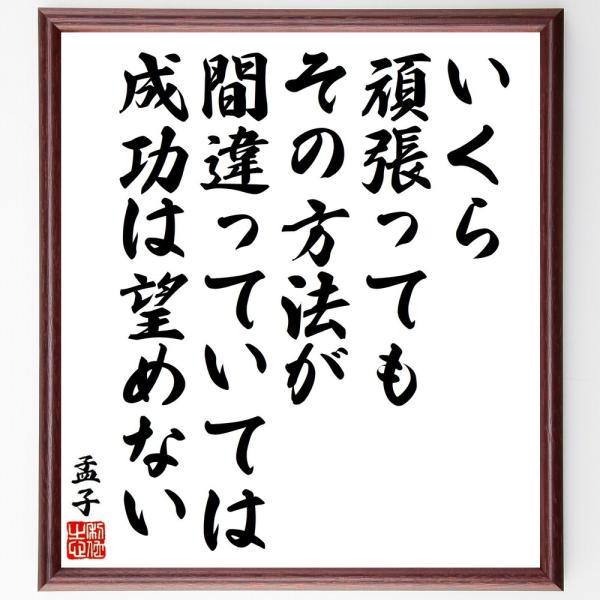 いくら
頑張っても
その方法が
間違っていては
成功は望めない
孟子